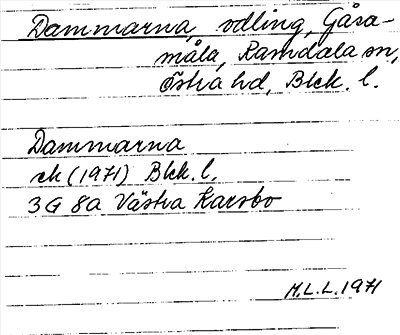 Dammarna, odling, Gåsa-
måla, Ramdala sn,
Östra hd, Blek. l.
Dammarna
ek (1971) Blek. l.
3G 8a Västra Karsbo
M.L.L. 1971